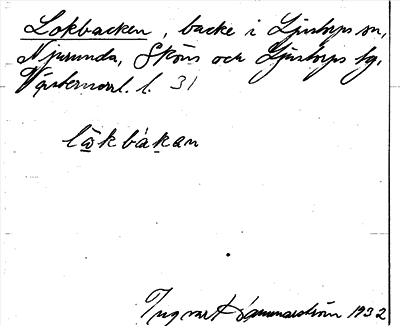 Lokbacken, backe i Ljustorps sn,
Njurunda, Sköns och Ljustorps tg,
Västernorrl. l. 31
lökbákan
Ingvar Hammarström 1932